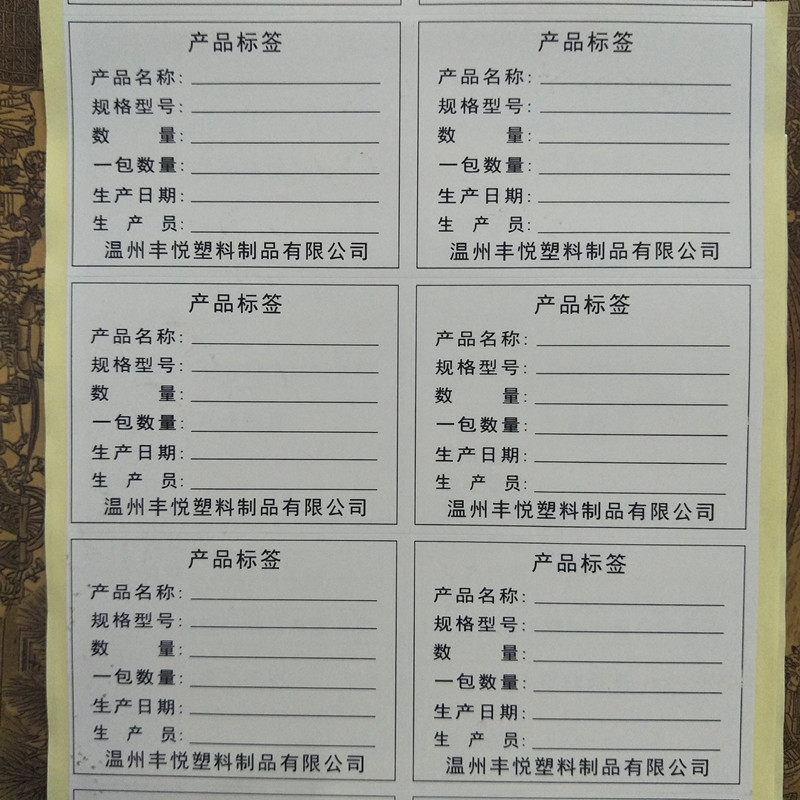 产品标签
产品名称:
规格型号:
数 量:
一包数量:
生产日期:
生 产 员:
温州丰悦塑料制品有限公司
产品标签
产品名称:
规格型号:
数 量:
一包数量:
生产日期:
生 产 员:
温州丰悦塑料制品有限公司
产品标签
产品名称:
规格型号:
数 量:
一包数量:
生产日期:
生 产 员:
温州丰悦塑料制品有限公司
产品标签
产品名称:
规格型号:
数 量:
一包数量:
生产日期:
生 产 员:
温州丰悦塑料制品有限公司
产品标签
产品名称:
规格型号:
数 量:
一包数量:
生产日期:
生 产 员:
温州丰悦塑料制品有限公司
产品标签
产品名称:
规格型号:
数 量:
一包数量:
生产日期:
生 产 员:
温州丰悦塑料制品有限公司